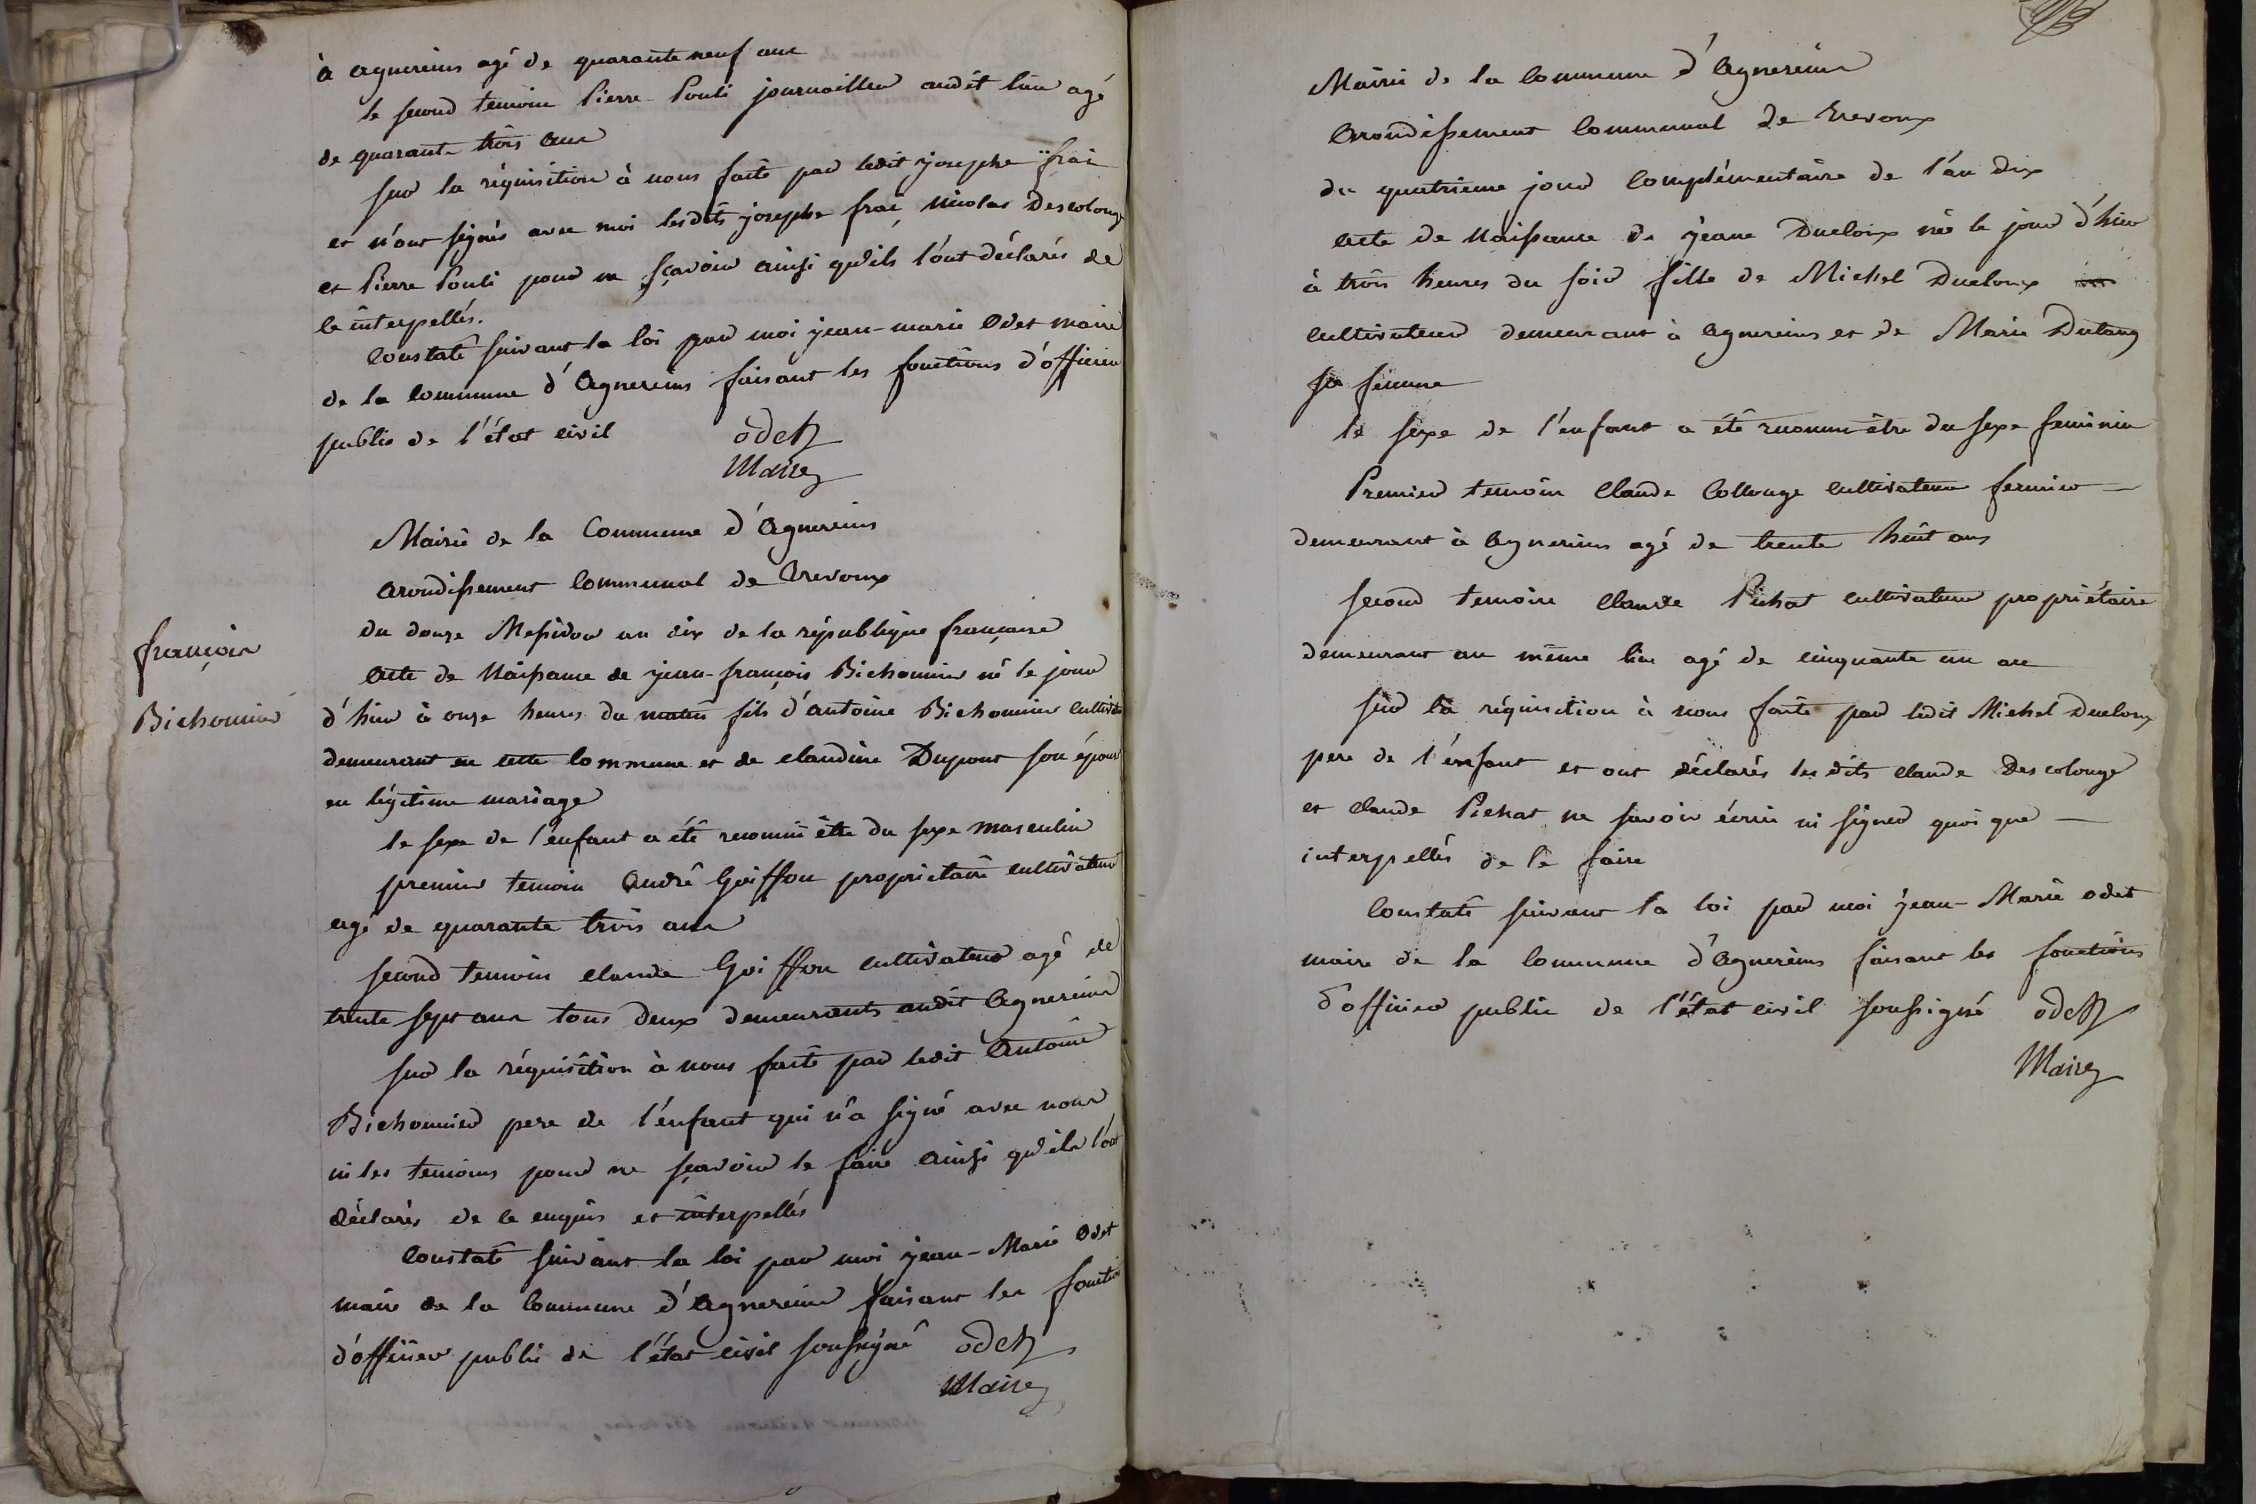 à agnereins agé de quarante neuf ans
le second temoin Pierre Pouli journaillier audit lieu agé
de quarante trois ans
sur la réquisition à nous faite par ledit josephe frai
et n'ont signés avec moi lesdits josephe frai, nicolas Descolonge
et Pierre Pouli pour ne sçavoir ainsi qu'ils l'ont déclarés de
le interpellés.
Constaté suivant la loi par moi jean-marie Odet maire
de la commune d'Agnereins faisant les fonctions d'officier
public de l'état civil odet
Maire
Mairie de la Commune d'Agnereins
arondissement Communal de Trevoux
du douze Messidor an dix de la république française
françois
Bichonnier
acte de Naissance de jean-françois Bichonnier né le jour
d'hier à onze heures du matin fils d'antoine Bichonnier cultivat
demeurant en cette commune et de claudine Dupont son épous
en légitime mariage
le sexe de l'enfant a été reconnu être du sexe masculin
premier temoin andré Goiffon proprietaire cultivateur
agé de quarante trois ans
second temoin claude Goiffon cultivateur agé de
trente sept ans tous deux demeurants audit Agnereins
sur la réquisition à nous faite par ledit Antoine
Bichonnier pere de l'enfant qui n'a signé avec nous
ni les temoins pour ne sçavoir le faire ainsi qu'ils l'ont
déclarés de ce enquis et interpellés
Constaté suivant la loi par moi jean-Marie Odet
maire de la Commune d'Agnereins faisant les fonction
d'officier public de l'état civil soussigné odet
Maire
Mairie de la Commune d'Agnereins
Arondissement Communal de Trevoux
du quatrieme jour Complémentaire de l'an dix
acte de Naissance de jeane Dueloux né le jour d'hier
à trois heures du soir fille de Michel Dueloux
cultivateur demeurant à Agnereins et de Marie Dutang
sa femme
le sexe de l'enfant a été reconnu être du sexe feminin
Premier temoin Claude Collonge cultivateur fermier
demeurant à Agnereins agé de trente huit ans
second temoin Claude Pichat cultivateur propriétaire
demeurant au même lieu agé de cinquante un an
sur la réquisition à nous faite par ledit Michel Dueloux
pere de l'enfant et ont déclarés lesdits claude Descolonge
et claude Pichat ne savoir écrire ni signer quoi que
interpellés de le faire
Constaté suivant la loi par moi jean-Marie odet
maire de la Commune d'Agnereins faisant les fonctions
d'officier public de l'état civil soussigné odet
Maire